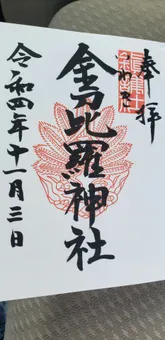 奉拝
金刀比羅神社
令和四年十一月三日